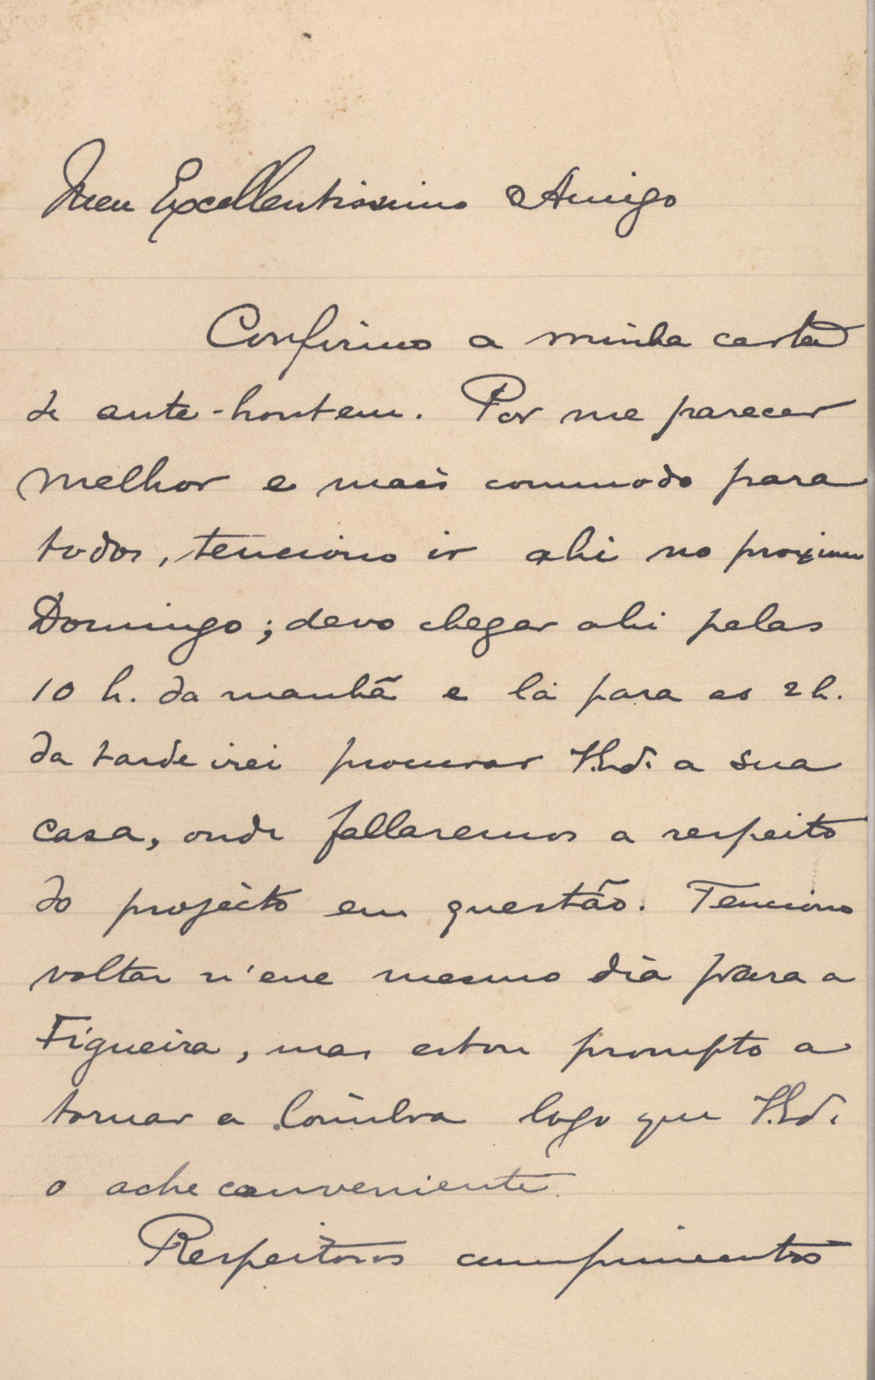 Meu Excellentissimo Amigo
Confirmo a minha carta
de ante-hontem. Por me parecer
melhor e mais commodo para
todos, tenciono ir ahi no proximo
Domingo; devo chegar ahi pelas
10 h. da manhã e lá para as 2 h.
da tarde irei procurar V.Ex.ª a sua
casa, onde fallaremos a respeito
do projécto em questão. Tenciono
voltar n'esse mesmo dia para a
Figueira, mas estou prompto a
tornar a Coimbra logo que V.Ex.ª
o ache conveniente.
Respeitosos cumprimentos